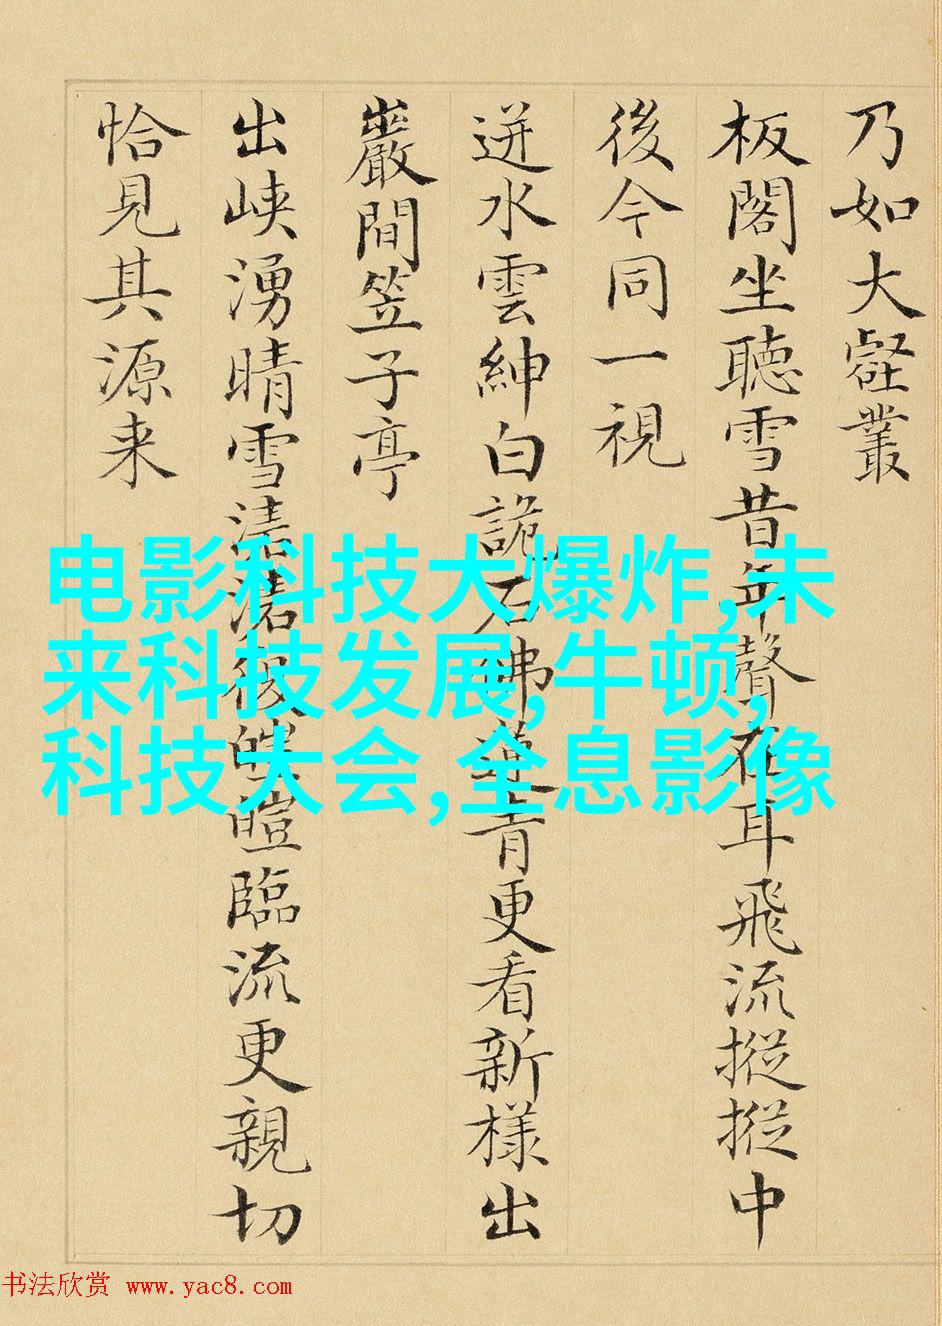 乃如大壑叢
板閣坐聽雪昔年聲在耳飛流摐摐中
後今同一視
迸水雲紳白詭石佛蓮青更看新樣出
巖間笠子亭
出峽湧晴雪臨流更親切
恰見其源来
电影科技大爆炸,未
来科技发展,牛顿,
科技大会,全息影像
书法欣赏 www.yac8.com